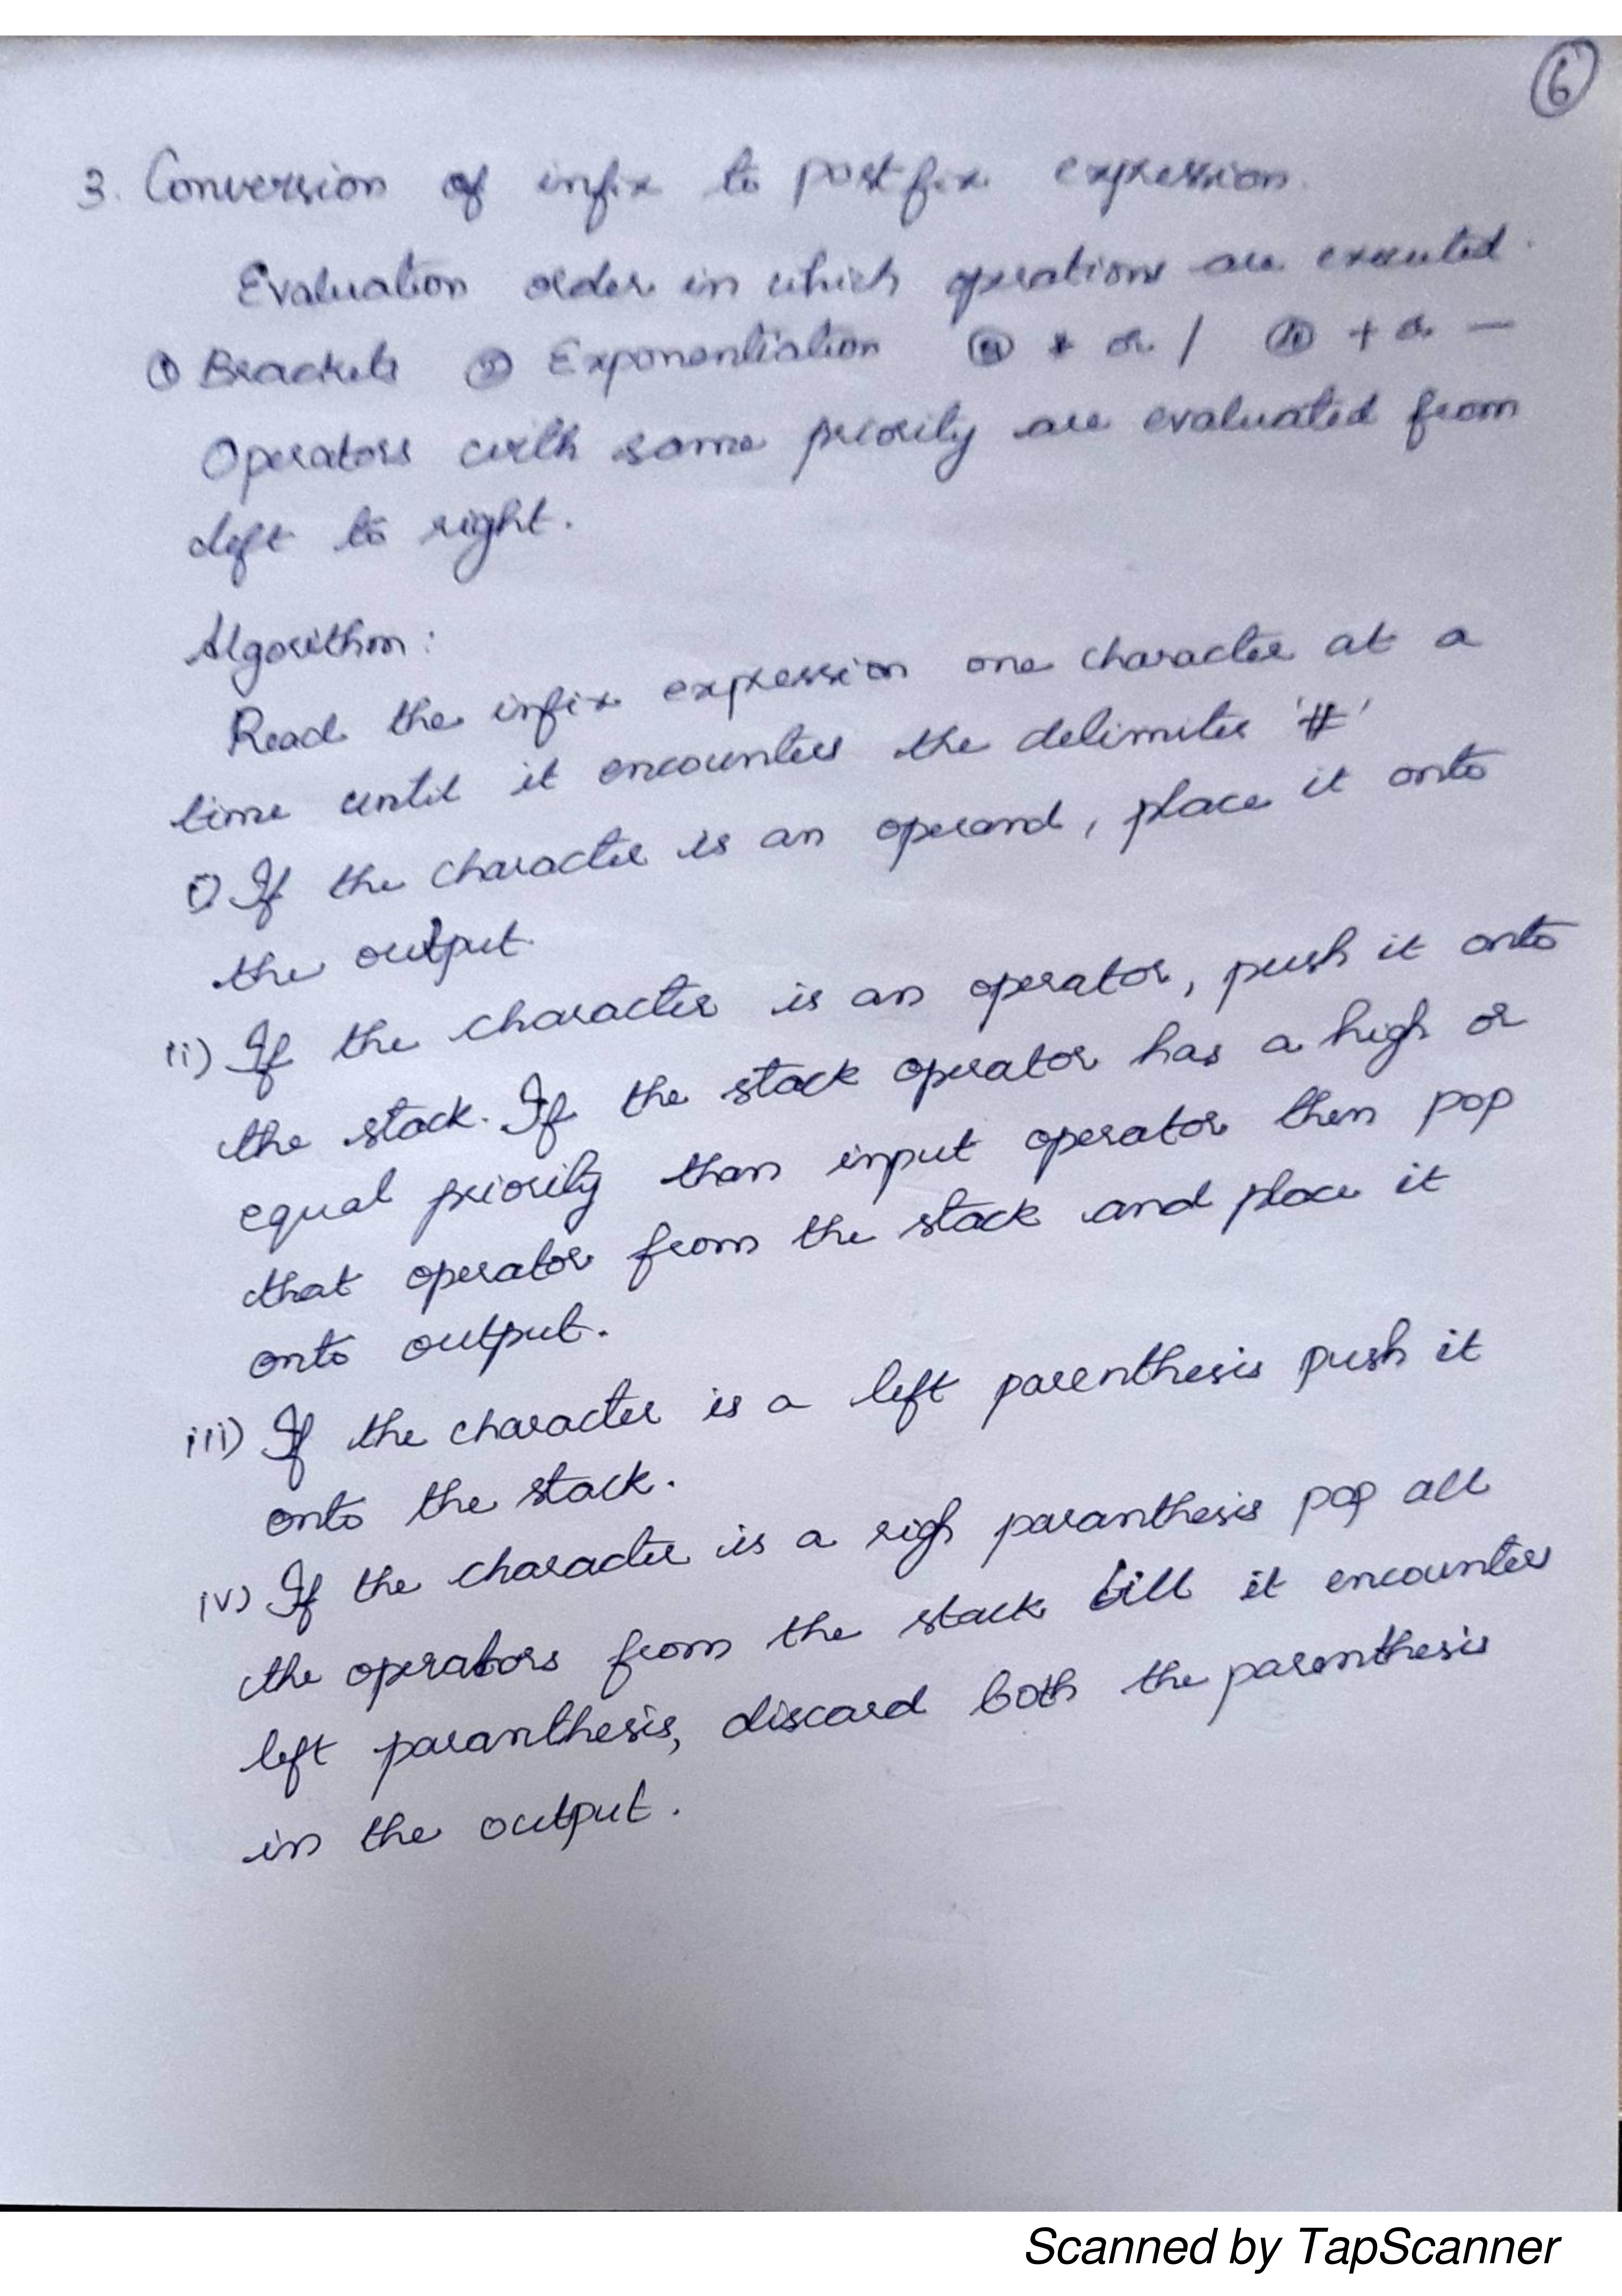 6
3. Conversion of infix to postfix expression.
Evaluation order in which operations are executed.
① Brackets ② Exponentiation * or / + or —
Operators with same priority are evaluated from
left to right.
Algorithm:
Read the infix expression one character at a
time until it encounters the delimiter '#'
i) If the character is an operand, place it onto
the output.
ii) If the character is an operator, push it onto
the stack. If the stack operator has a high or
equal priority than input operator then pop
that operator from the stack and place it
onto output.
iii) If the character is a left parenthesis push it
onto the stack.
iv) If the character is a righ paranthesis pop all
the operators from the stack till it encounters
left paranthesis, discard both the parenthesis
in the output.
Scanned by TapScanner